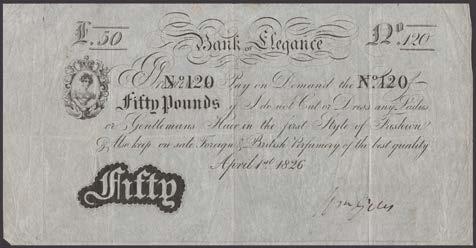 £.50 Bank of Elegance No.120
No.120 Pay on Demand the No.120 of
Fifty Pounds if I do not Cut or Dress any Ladies
or Gentlemans Hair in the first Style of Fashion
& Also keep on sale Foreign & British Perfumery of the best quality
April 1st 1826
Fifty